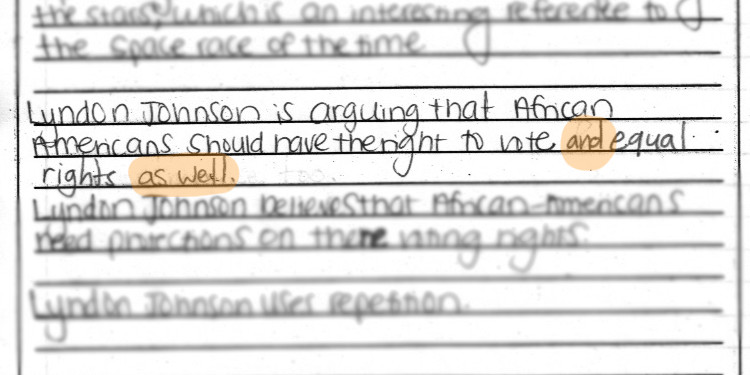 the stars", which is an interesting reference to
the space race of the time
Lyndon Johnson is arguing that African
Americans should have the right to vote and equal
rights as well.
Lyndon Johnson believes that African-Americans
need protections on there voting rights.
Lyndon Johnson uses repetition.